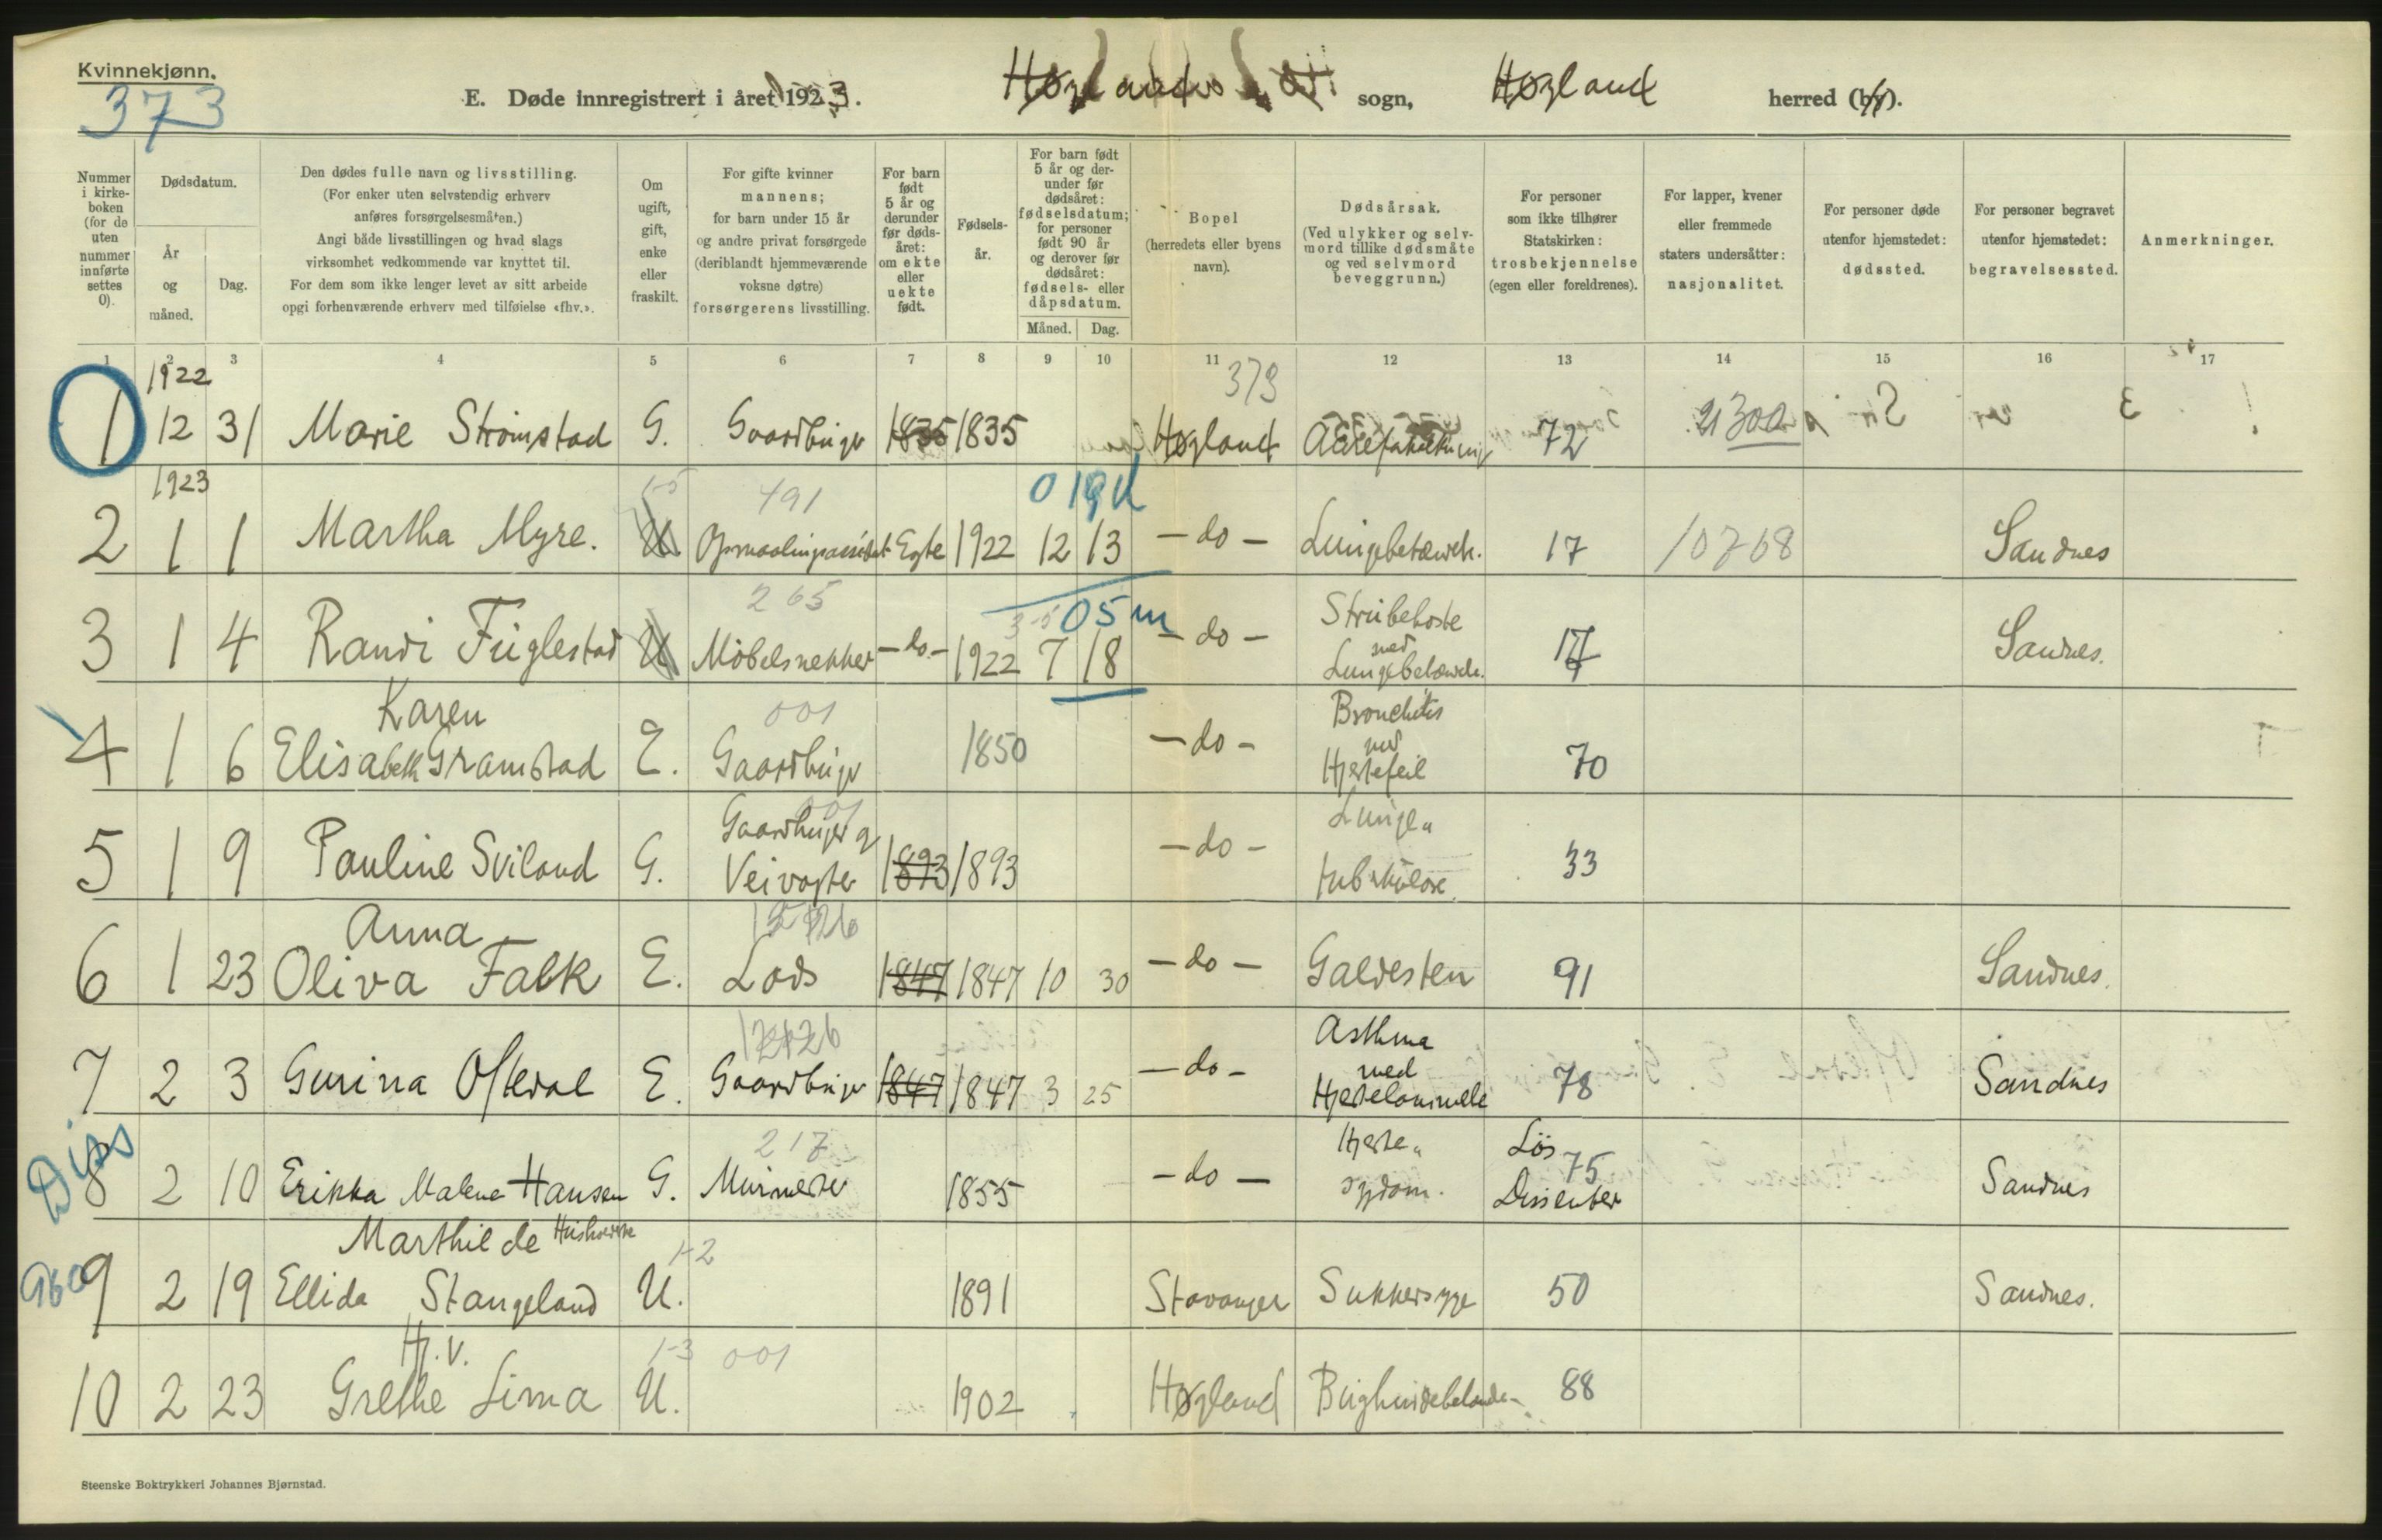 Kvinnekjønn.
373
E. Døde innregistrert i året 1923.
sogn, Høgland herred (by).
Nummer i kirke-boken (for de uten nummer innførte settes 0).
Dødsdatum.
År og måned.
Dag.
Den dødes fulle navn og livsstilling.
(For enker uten selvstendig erhverv anføres forsørgelsesmåten.)
Angi både livsstillingen og hvad slags virksomhet vedkommende var knyttet til.
For dem som ikke lenger levet av sitt arbeide opgi forhenværende erhverv med tilføielse «fhv.».
Om ugift, gift, enke eller fraskilt.
For gifte kvinner mannens; for barn under 15 år og andre privat forsørgede (deriblandt hjemmeværende voksne døtre) forsørgerens livsstilling.
For barn født 5 år og derunder før døds-året: om ekte eller uekte født.
Fødsels-år.
For barn født 5 år og der-under før dødsåret: fødselsdatum; for personer født 90 år og derover før dødsåret: fødsels- eller dåpsdatum.
Måned.
Dag.
Bopel (herredets eller byens navn).
Dødsårsak.
(Ved ulykker og selv-mord tillike dødsmåte og ved selvmord beveggrunn.)
For personer som ikke tilhører Statskirken: trosbekjennelse (egen eller foreldrenes).
For lapper, kvener eller fremmede staters undersåtter: nasjonalitet.
For personer døde utenfor hjemstedet: dødssted.
For personer begravet utenfor hjemstedet: begravelsessted.
Anmerkninger.
1 2 3 4 5 6 7 8 9 10 11 12 13 14 15 16 17
1922 373
1 12 31 Marie Strømstad G. Gaardbruger 1835 1835 Høgland 72
1923 1-5 491
2 1 1 Martha Myre. U. Egte 1922 12 13 -do- Lungebetændelse. 17 10768 Sandnes
265 05 m
3 1 4 Randi Fuglestad U Møbelsnekker -do- 1922 7 18 -do- Strubehoste med Lungebetændelse. 17 Sandnes.
Karen 001
4 1 6 Elisabeth Gramstad E. Gaardbruger 1850 -do- Bronchitis med Hjertefeil 70
001
5 1 9 Pauline Sviland G. Gaardbruger og Veivogter 1893 1893 -do- Lunge" tuberkulose. 33
Anna
6 1 23 Oliva Falk E. Lods 1847 1847 10 30 -do- Galdesten 91 Sandnes.
7 2 3 Gurina Ofstedal E. Gaardbruger 1847 1847 3 25 -do- Asthma med Hjertelammelse 78 Sandnes
Diss 217
8 2 10 Erikka Malene Hansen G. Murmester 1855 -do- Hjerte" sygdom. Løs Dissenter 75 Sandnes
Marthilde Husholderske 1-2
960
9 2 19 Ellida Stangeland U. 1891 Stavanger Sukkersyge 50 Sandnes.
Hj.v. 1-3 001
10 2 23 Grethe Lima U. 1902 Høgland Bughindebetændelse 88
Steenske Boktrykkeri Johannes Bjørnstad.